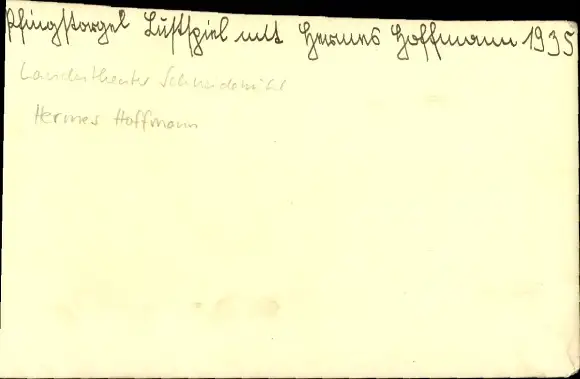 Pfingstorgel Lustspiel mit Hermes Hoffmann 1935
Landestheater Schneidemühl
Hermes Hoffmann